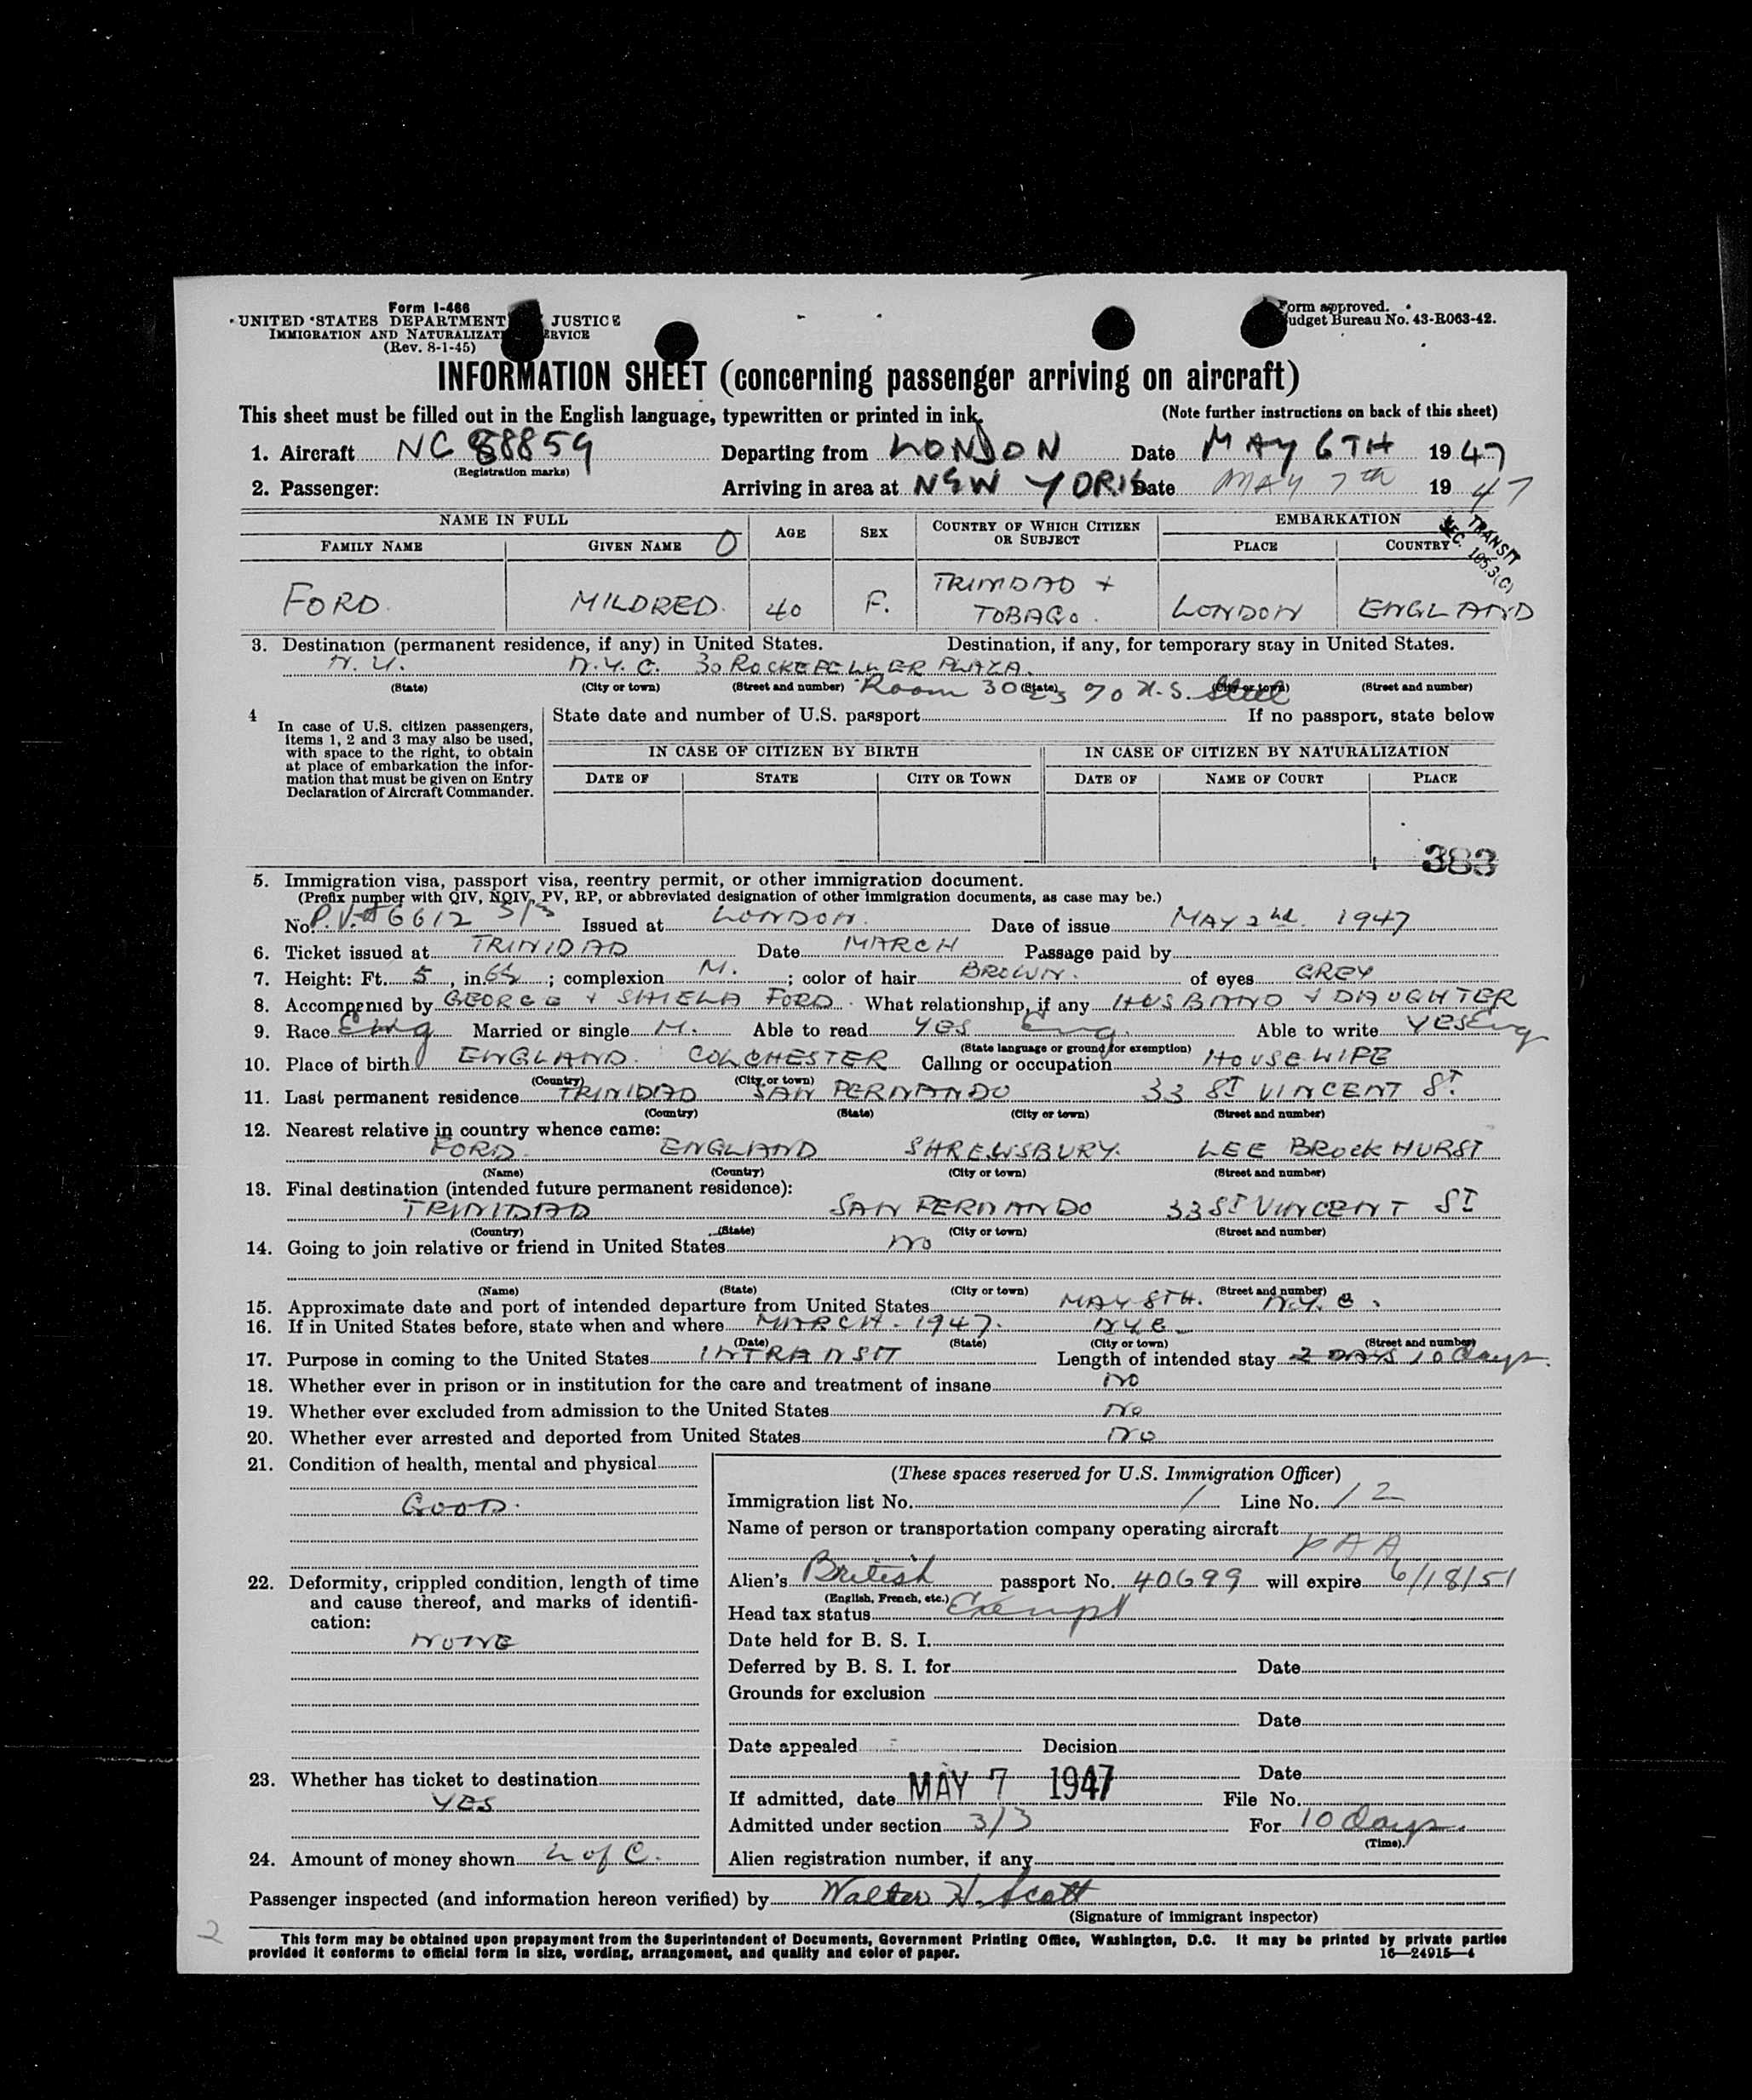 Form I-466
UNITED STATES DEPARTMENT JUSTICE
IMMIGRATION AND NATURALIZAT ERVICE
(Rev. 8-1-45)
Form approved.
udget Bureau No. 43-R063-42.
INFORMATION SHEET (concerning passenger arriving on aircraft)
This sheet must be filled out in the English language, typewritten or printed in ink. (Note further instructions on back of this sheet)
1. Aircraft NC 88859 Departing from LONDON Date MAY 6TH 1947
(Registration marks)
2. Passenger: Arriving in area at NEW YORK Date MAY 7th 1947
NAME IN FULL AGE SEX COUNTRY OF WHICH CITIZEN OR SUBJECT EMBARKATION
FAMILY NAME GIVEN NAME O PLACE COUNTRY
TRANSIT
SEC. 105.3(C)
FORD MILDRED 40 F. TRINIDAD + TOBAGO. LONDON ENGLAND
3. Destination (permanent residence, if any) in United States. Destination, if any, for temporary stay in United States.
N.Y. N.Y.C. 30 ROCKEFELLER PLAZA.
(State) (City or town) (Street and number) Room (State) (City or town) (Street and number)
U.S. Steel
4 In case of U.S. citizen passengers, items 1, 2 and 3 may also be used, with space to the right, to obtain at place of embarkation the information that must be given on Entry Declaration of Aircraft Commander.
State date and number of U.S. passport If no passport, state below
IN CASE OF CITIZEN BY BIRTH IN CASE OF CITIZEN BY NATURALIZATION
DATE OF STATE CITY OR TOWN DATE OF NAME OF COURT PLACE
383
5. Immigration visa, passport visa, reentry permit, or other immigration document.
(Prefix number with QIV, NQIV, PV, RP, or abbreviated designation of other immigration documents, as case may be.)
No. P.V.#6612 3/3 Issued at LONDON. Date of issue MAY 2nd. 1947
6. Ticket issued at TRINIDAD Date MARCH Passage paid by
7. Height: Ft. 5, in. 6½; complexion M.; color of hair BROWN. of eyes GREY
8. Accompanied by GEORGE + SHIELA FORD. What relationship, if any HUSBAND + DAUGHTER
9. Race Eng Married or single M. Able to read YES Eng. Able to write YES Eng
(State language or ground for exemption)
10. Place of birth ENGLAND. COLCHESTER Calling or occupation HOUSEWIFE
(Country) (City or town)
11. Last permanent residence TRINIDAD SAN FERNANDO 33 ST VINCENT ST.
(Country) (State) (City or town) (Street and number)
12. Nearest relative in country whence came:
FORD. ENGLAND SHREWSBURY. LEE BROCKHURST
(Name) (Country) (City or town) (Street and number)
13. Final destination (intended future permanent residence):
TRINIDAD SAN FERNANDO 33 ST VINCENT ST
(Country) (State) (City or town) (Street and number)
14. Going to join relative or friend in United States NO
(Name) (State) (City or town) (Street and number)
15. Approximate date and port of intended departure from United States MAY 8TH. N.Y.C.
16. If in United States before, state when and where MARCH. 1947. NYC
(Date) (State) (City or town) (Street and number)
17. Purpose in coming to the United States INTRANSIT Length of intended stay 2 DAYS 10 days.
18. Whether ever in prison or in institution for the care and treatment of insane NO
19. Whether ever excluded from admission to the United States No
20. Whether ever arrested and deported from United States No
21. Condition of health, mental and physical
GOOD.
22. Deformity, crippled condition, length of time and cause thereof, and marks of identification:
NONE
23. Whether has ticket to destination
YES
24. Amount of money shown L of C.
(These spaces reserved for U.S. Immigration Officer)
Immigration list No. 1 Line No. 12
Name of person or transportation company operating aircraft
PAA
Alien's British passport No. 40699 will expire 6/18/51
(English, French, etc.)
Head tax status Exempt
Date held for B. S. I.
Deferred by B. S. I. for Date
Grounds for exclusion
Date
Date appealed Decision
Date
If admitted, date MAY 7 1947 File No.
Admitted under section 3/3 For 10 days.
(Time)
Alien registration number, if any
Passenger inspected (and information hereon verified) by Walter H. Scott
(Signature of immigrant inspector)
2
This form may be obtained upon prepayment from the Superintendent of Documents, Government Printing Office, Washington, D.C. It may be printed by private parties
provided it conforms to official form in size, wording, arrangement, and quality and color of paper. 16—24915-4